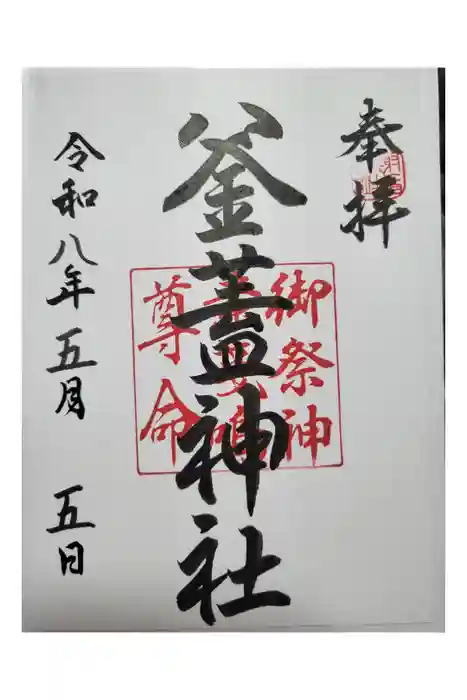 奉拝
釜蓋神社
御祭神
尊命
令和八年 五月 五日